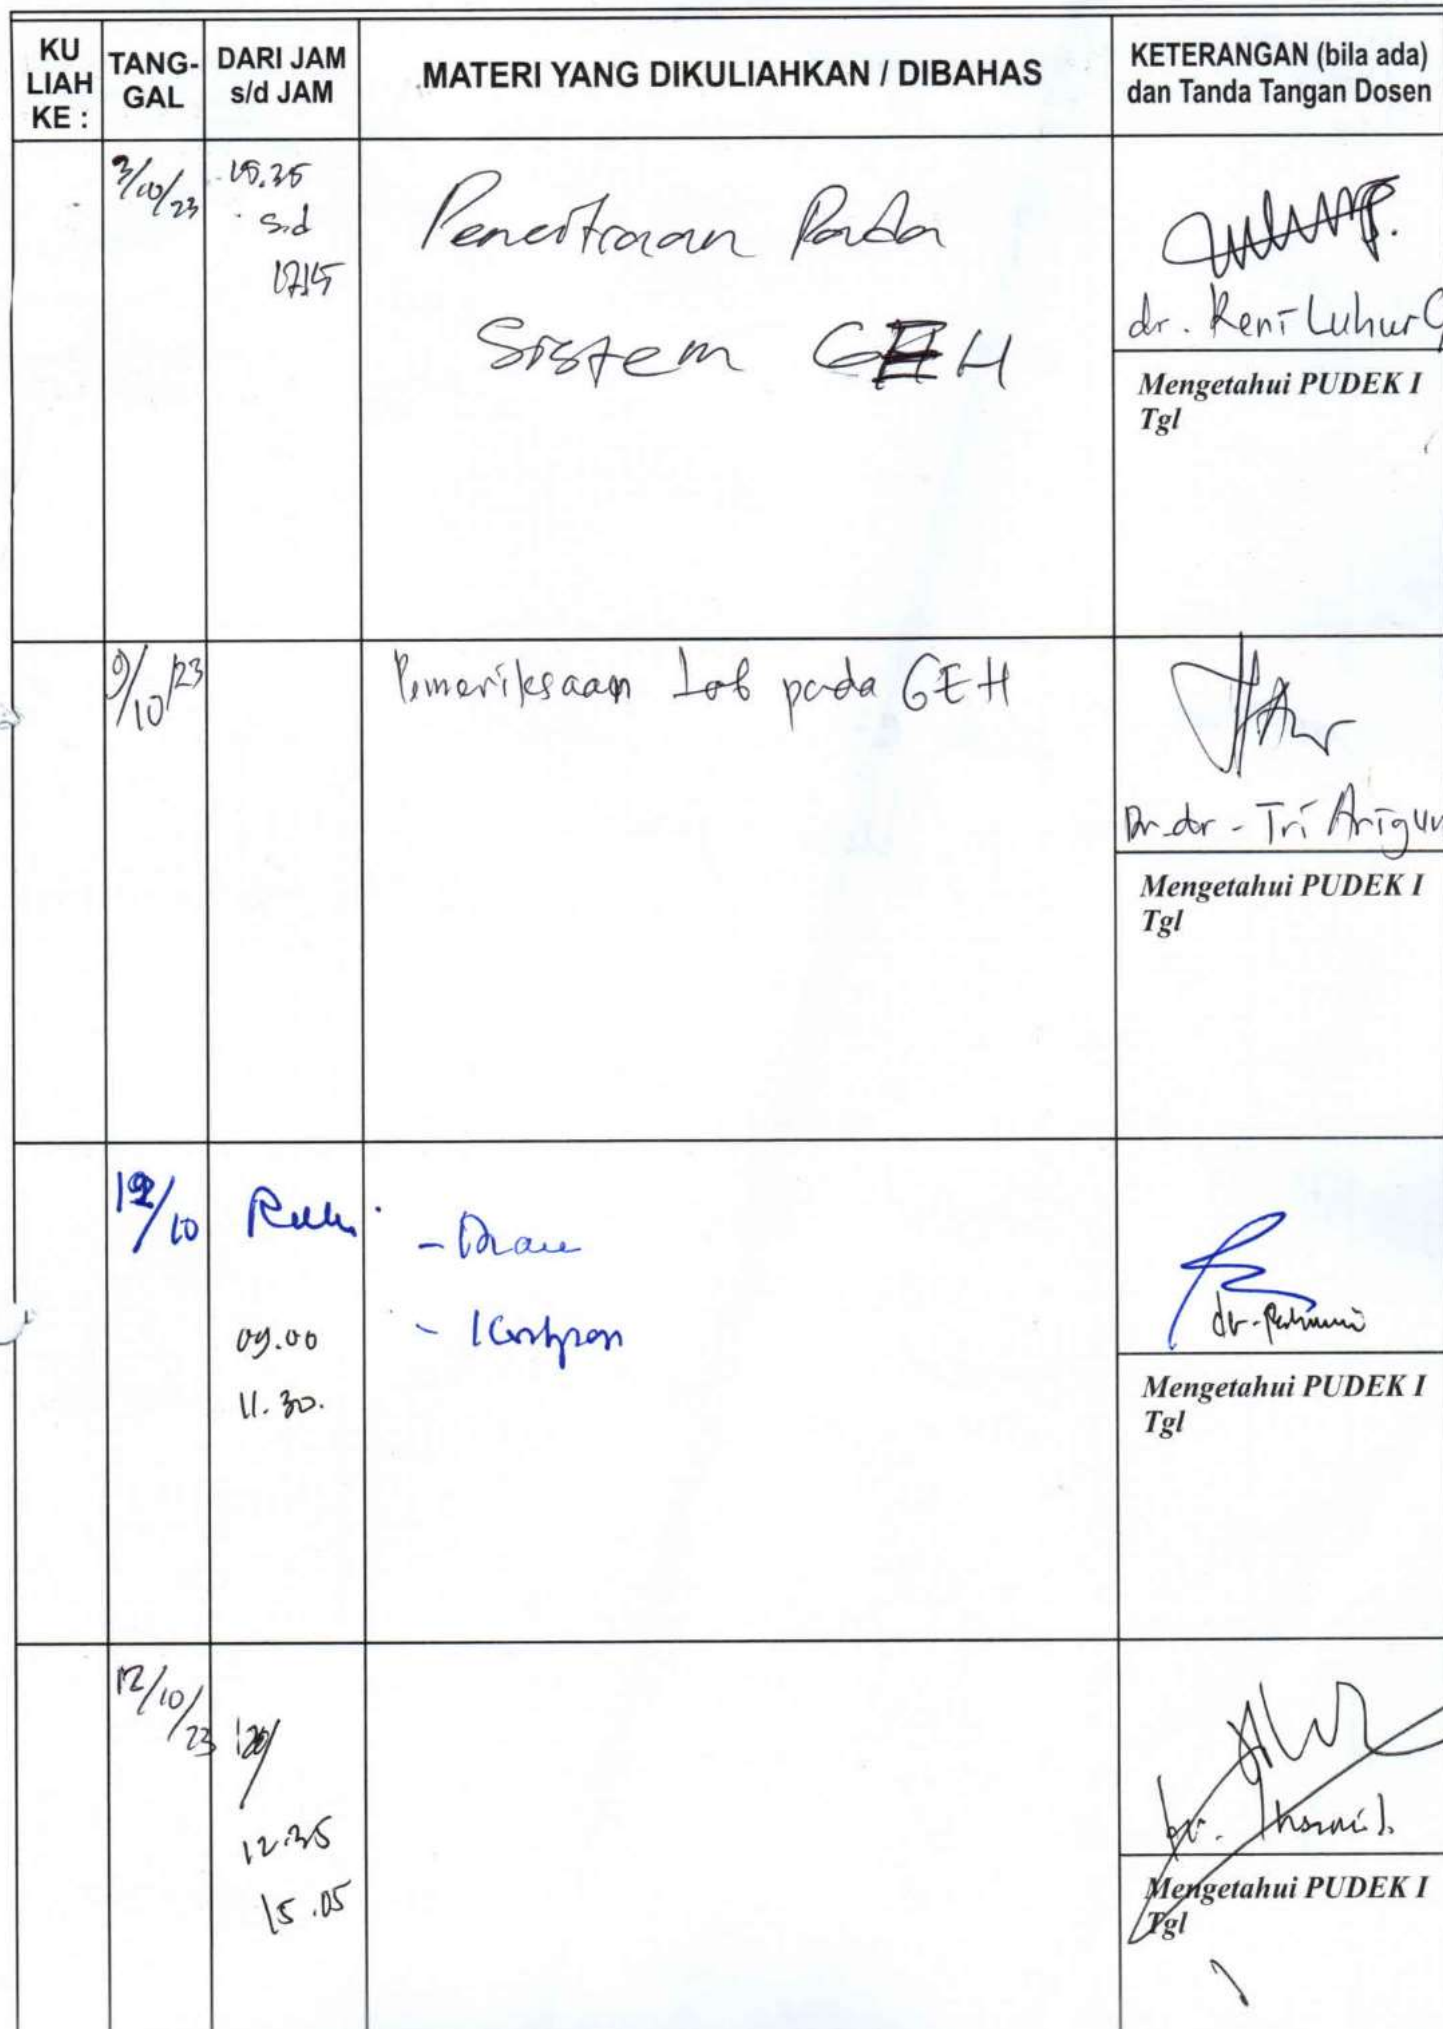 KU LIAH KE :
TANG-GAL
DARI JAM s/d JAM
MATERI YANG DIKULIAHKAN / DIBAHAS
KETERANGAN (bila ada) dan Tanda Tangan Dosen
3/10/23
15.35
s.d
17.15
Pencitraan Pada
Sistem GEH
dr. Reni Luhur
Mengetahui PUDEK I
Tgl
9/10/23
Pemeriksaan Lab pada GEH
Dr. dr - Tri Arigun
Mengetahui PUDEK I
Tgl
12/10
- Diare
09.00
11.30.
dr.
Mengetahui PUDEK I
Tgl
12/10/23
12.35
15.05
dr.
Mengetahui PUDEK I
Tgl